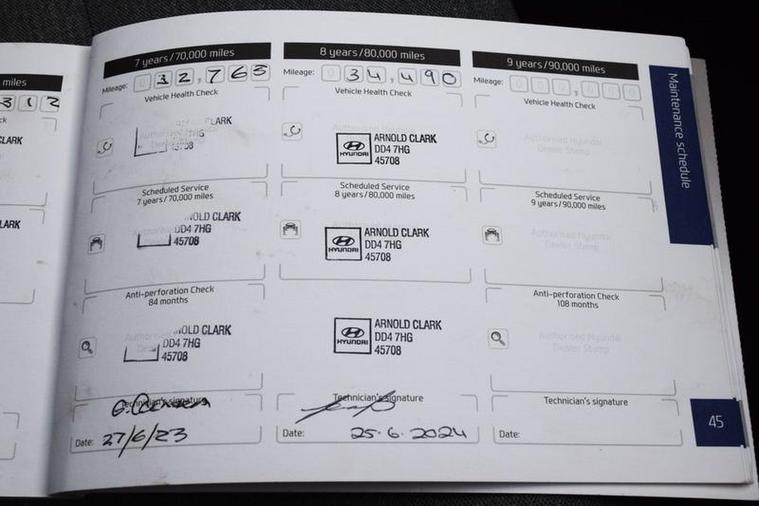 miles
312
CLARK
LARK
7 years/70,000 miles
Mileage: 0 32,763
Vehicle Health Check
CLARK
7HG
45708
Scheduled Service
7 years/70,000 miles
NOLD CLARK
DD4 7HG
45708
Anti-perforation Check
84 months
NOLD CLARK
DD4 7HG
45708
Technician's signature
Date: 27/6/23
8 years/80,000 miles
Mileage: 0 34,490
Vehicle Health Check
HYUNDAI
ARNOLD CLARK
DD4 7HG
45708
Scheduled Service
8 years/80,000 miles
HYUNDAI
ARNOLD CLARK
DD4 7HG
45708
HYUNDAI
ARNOLD CLARK
DD4 7HG
45708
Technician's signature
Date: 25.6.2024
9 years/90,000 miles
Mileage: 0 0 0 , 0 0 0
Vehicle Health Check
Authorised Hyundai
Dealer Stamp
Scheduled Service
9 years/90,000 miles
Authorised Hyundai
Dealer Stamp
Anti-perforation Check
108 months
Authorised Hyundai
Dealer Stamp
Technician's signature
Date:
Maintenance schedule
45